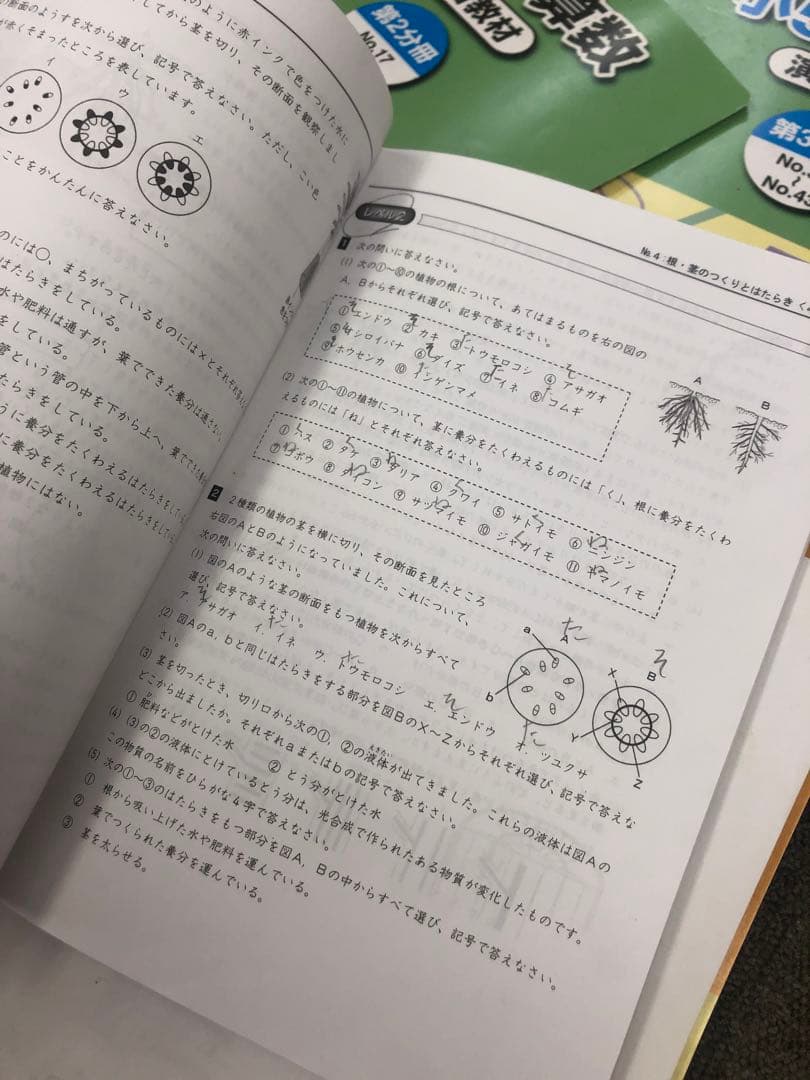 算数
教材
第2分冊
No.17
第3
No.43
のように赤インクで色をつけた水に
してから茎を切り、その断面を観察しまし
の断面のようすを次から選び、記号で答えなさい。ただし、こい色
が赤くそまったところを表しています。
イ
ウ
エ
ことをかんたんに答えなさい。
のには○、まちがっているものには×とそれぞれ答え
はたらきをしている。
水や肥料は通すが、葉でできた養分は通さない
をしている。
管という管の中を下から上へ、葉でできた
たらきをしている。
うに養分をたくわえるはたらきをして
に養分をたくわえるはたらきをして
植物にはない。
レベル2
№4:根・茎のつくりとはたらき
1 次の問いに答えなさい。
(1) 次の①~⑩の植物の根について、あてはまるものを右の図の
A、Bからそれぞれ選び、記号で答えなさい。
① エンドウ ② カキ ③ トウモロコシ ④ アサガオ
⑤ オシロイバナ ⑥ ダイズ ⑦ イネ ⑧ コムギ
⑨ ホウセンカ ⑩ インゲンマメ
A
B
(2) 次の①~⑪の植物について、茎に養分をたくわえるものには「く」、根に養分をたくわ
えるものには「ね」とそれぞれ答えなさい。
① ハス ② タケ ③ ダリア ④ クワイ ⑤ サトイモ ⑥ ニンジン
⑦ ゴボウ ⑧ ダイコン ⑨ サツマイモ ⑩ ジャガイモ ⑪ ヤマノイモ
2 2種類の植物の茎を横に切り、その断面を見たところ
右図のAとBのようになっていました。これについて、
次の問いに答えなさい。
(1) 図のAのような茎の断面をもつ植物を次からすべて
選び、記号で答えなさい。
ア. アサガオ イ. イネ ウ. トウモロコシ エ. エンドウ オ. ツユクサ
a
A
b
た
そ
B
X
Y
Z
(2) 図Aのa、bと同じはたらきをする部分を図BのX~Zからそれぞれ選び、記号で答えな
さい。
(3) 茎を切ったとき、切り口から次の①、②の液体が出てきました。これらの液体は図Aの
どこから出ましたか。それぞれaまたはbの記号で答えなさい。
① 肥料などがとけた水 ② とう分がとけた水
(4) (3)の②の液体にとけているとう分は、光合成で作られたある物質が変化したものです。
この物質の名前をひらがな4字で答えなさい。
(5) 次の①~③のはたらきをもつ部分を図A、Bの中からすべて選び、記号で答えなさい。
① 根から吸い上げた水や肥料を運んでいる。
② 葉でつくられた養分を運んでいる。
③ 茎を太らせる。